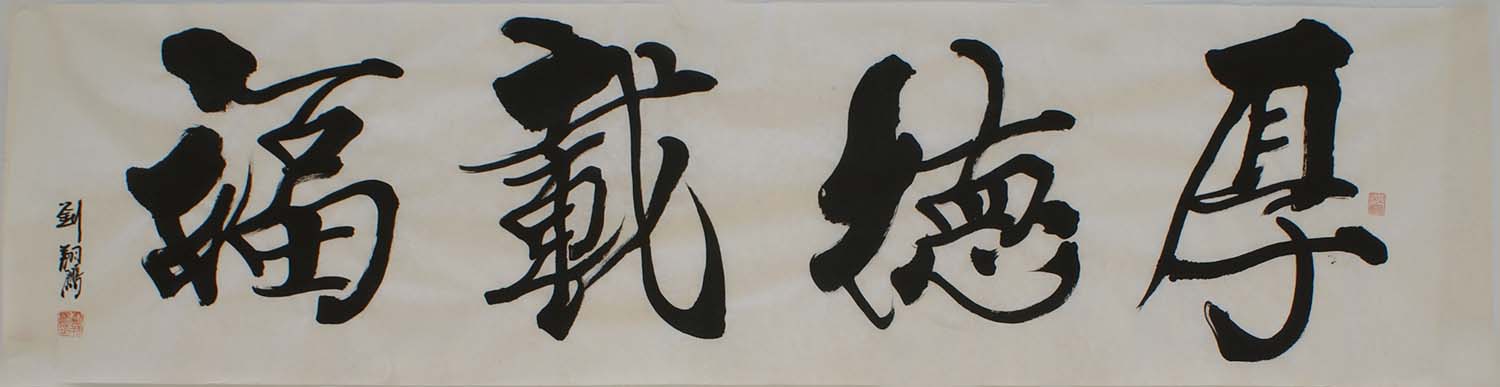 厚德載福
劉翔